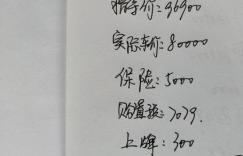 指导价:96900
实际车价:80000
保险:5000
购置税:7079.
上牌:300